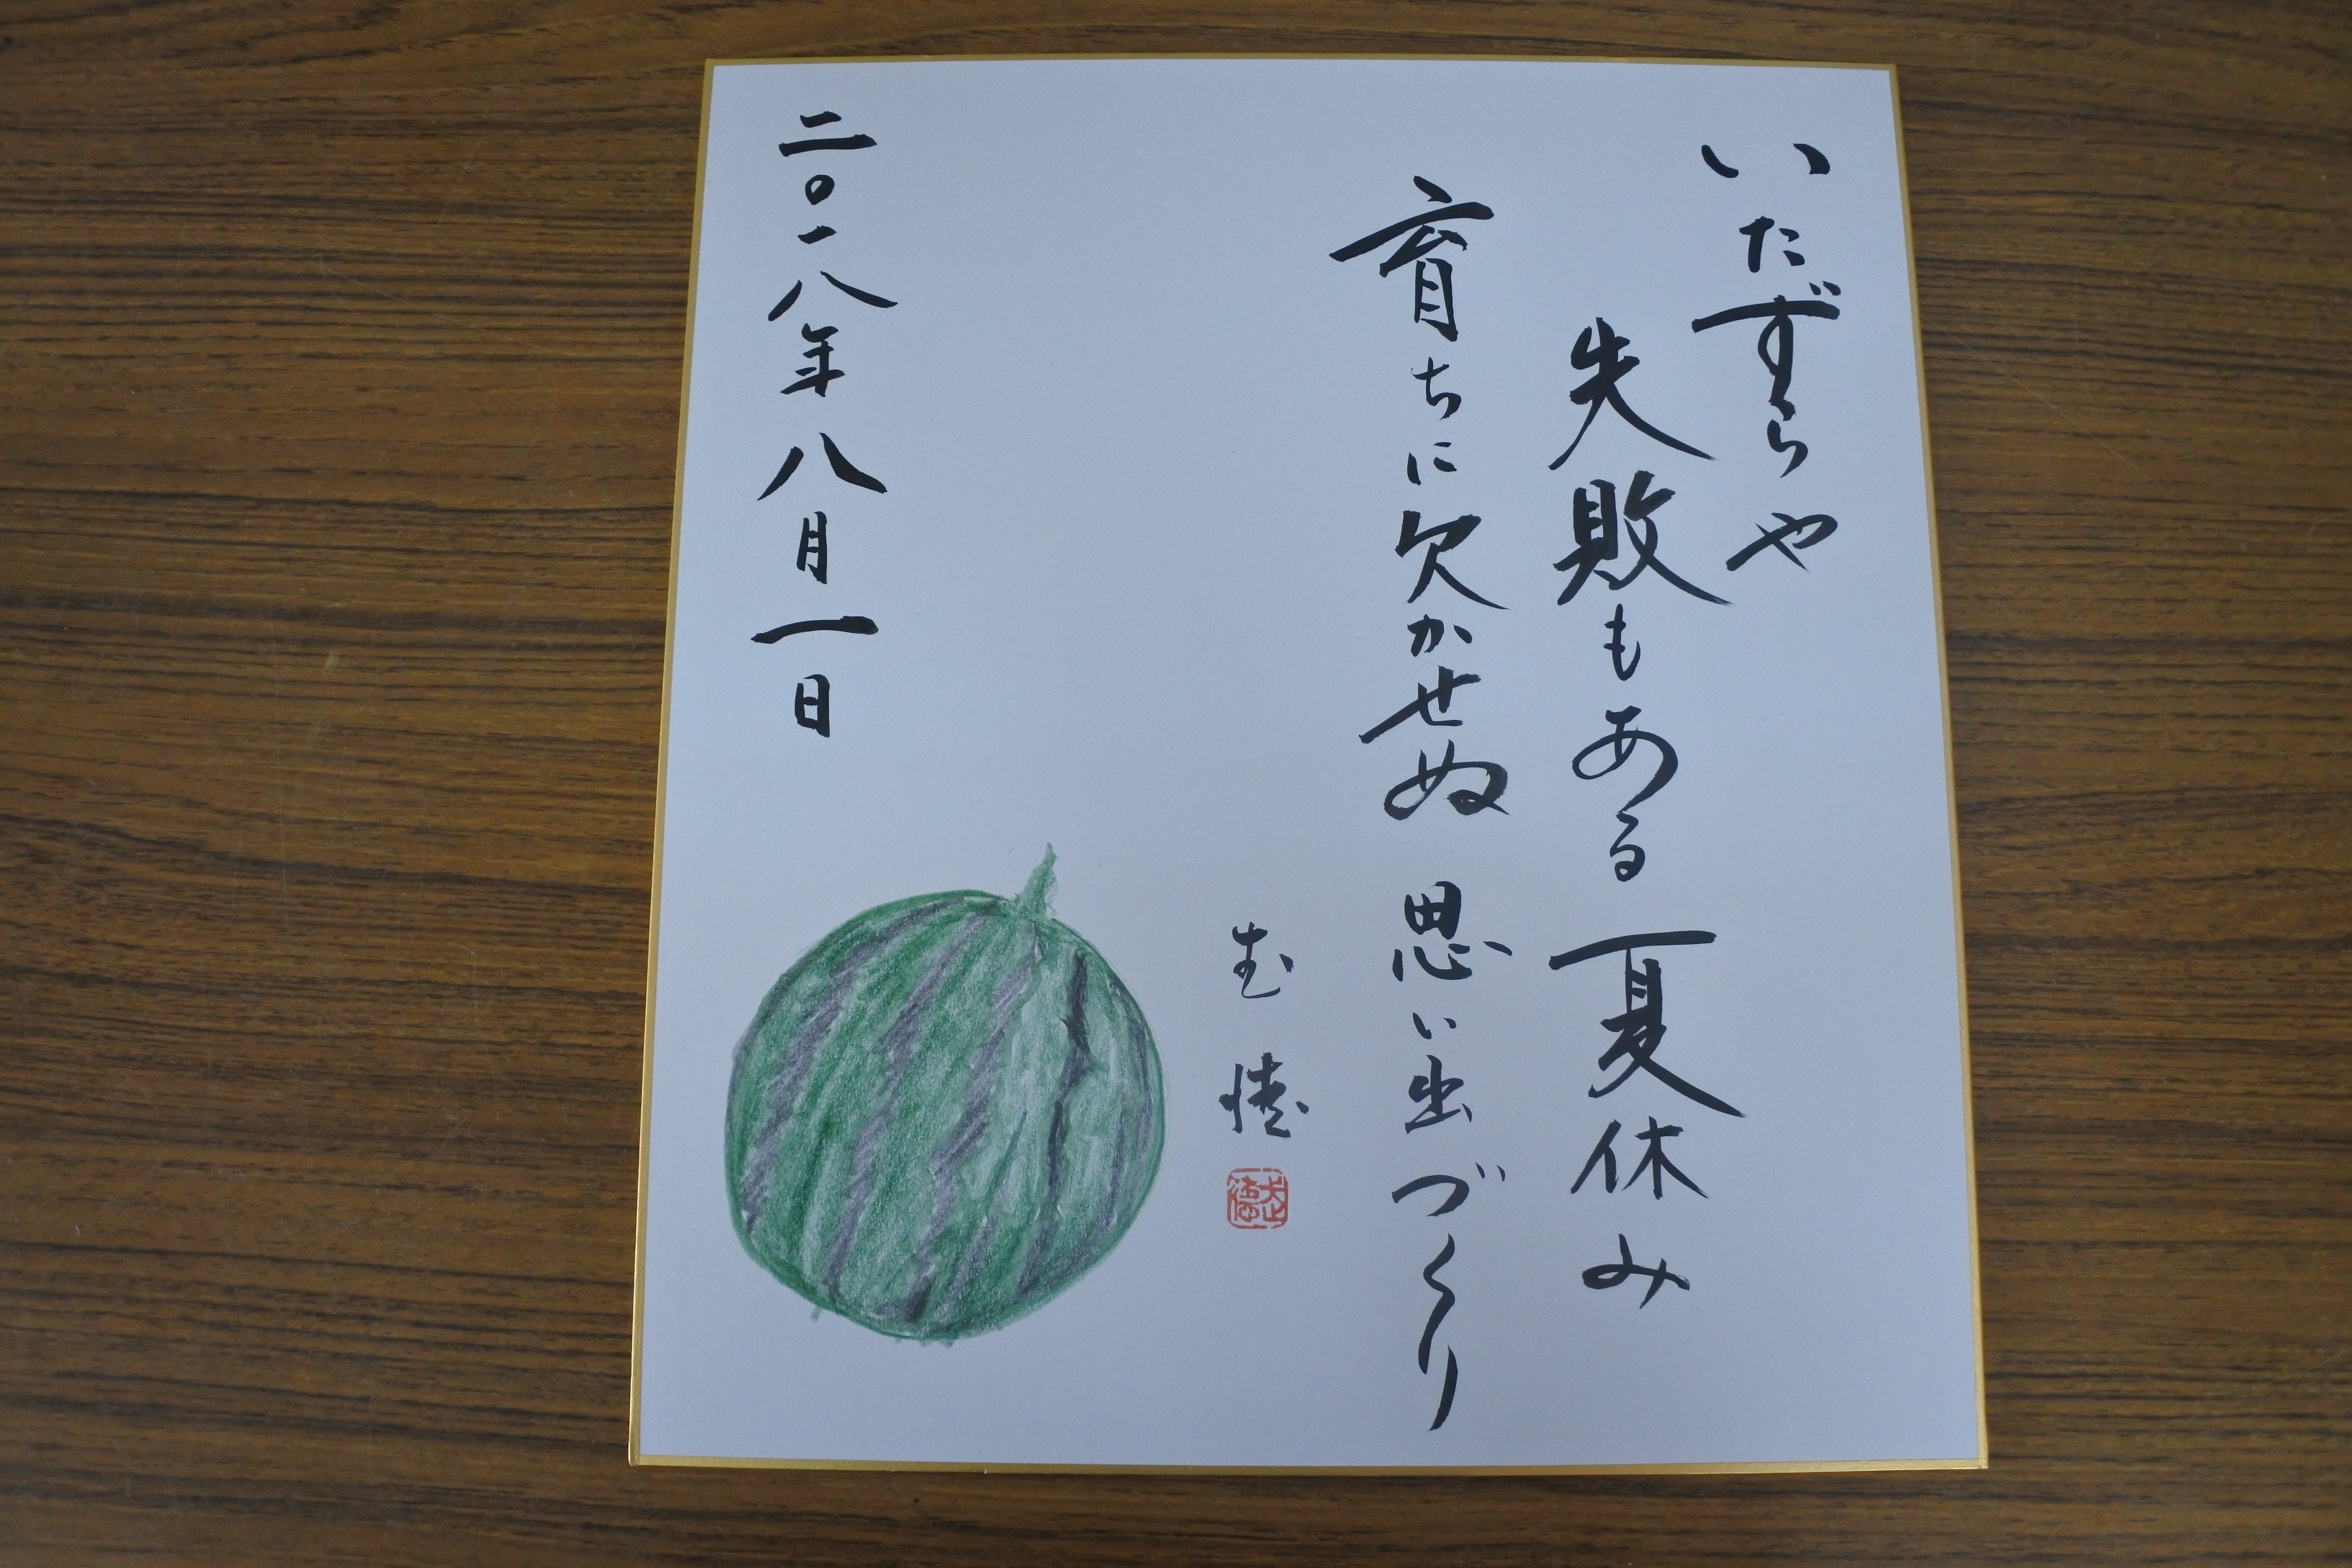 いたずらや
失敗もある 夏休み
育ちに欠かせぬ 思い出づくり
二〇一八年八月一日